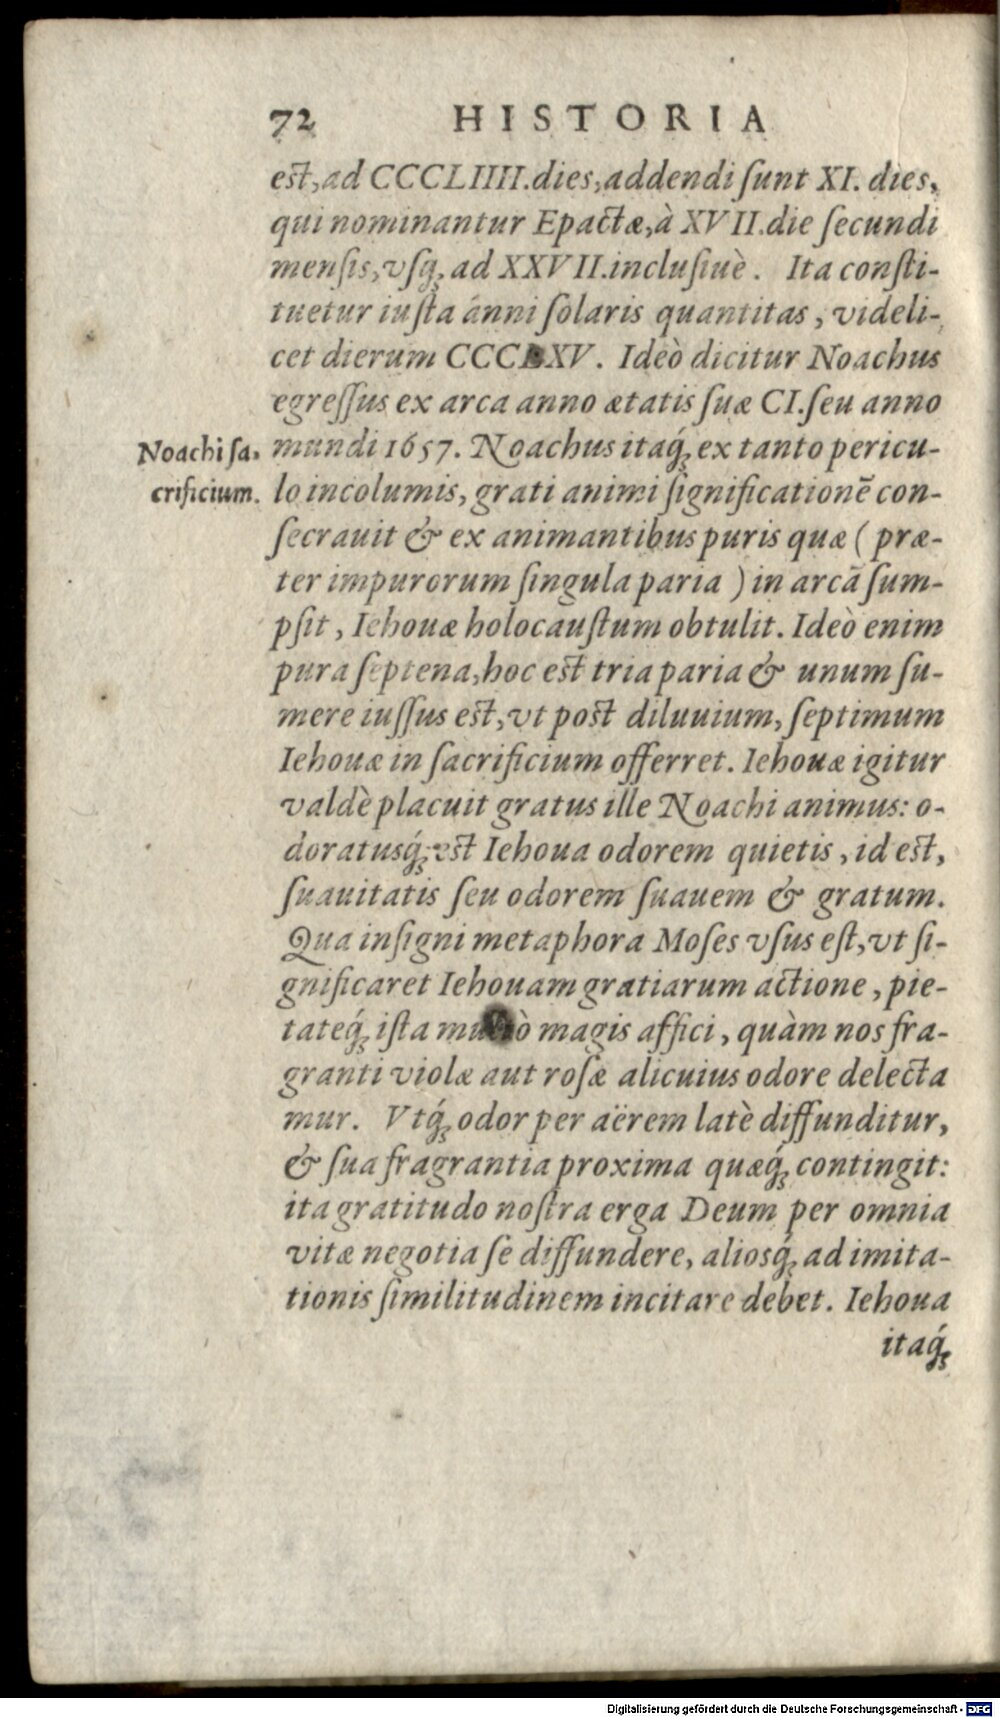 72 HISTORIA
est, ad CCCLIIII. dies, addendi ſunt XI. dies,
qui nominantur Epactæ, à XVII. die ſecundi
menſis, vſq́; ad XXVII. incluſiuè. Ita conſti-
tuetur iuſta ánni ſolaris quantitas, videli-
cet dierum CCCLXV. Ideò dicitur Noachus
egreſſus ex arca anno ætatis ſuæ CI. ſeu anno
Noachi ſa-
crificium.
mundi 1657. Noachus itaq́; ex tanto pericu-
lo incolumis, grati animi ſignificationẽ con-
ſecrauit & ex animantibus puris quæ ( præ-
ter impurorum ſingula paria ) in arcã ſum-
pſit, Iehouæ holocauſtum obtulit. Ideò enim
pura ſeptena, hoc est tria paria & unum ſu-
mere iuſſus est, vt post diluuium, ſeptimum
Iehouæ in ſacrificium offerret. Iehouæ igitur
valdè placuit gratus ille Noachi animus: o-
doratusq́; est Iehoua odorem quietis, id est,
ſuauitatis ſeu odorem ſuauem & gratum.
Qua inſigni metaphora Moſes vſus eſt, vt ſi-
gnificaret Iehouam gratiarum actione, pie-
tateq́; iſta multò magis affici, quàm nos fra-
granti violæ aut roſæ alicuius odore delecta
mur. Vtq́; odor per aërem latè diffunditur,
& ſua fragrantia proxima quæq́; contingit:
ita gratitudo noſtra erga Deum per omnia
vitæ negotia ſe diffundere, aliosq́; ad imita-
tionis ſimilitudinem incitare debet. Iehoua
itaq́;
Digitalisierung gefördert durch die Deutsche Forschungsgemeinschaft - DFG